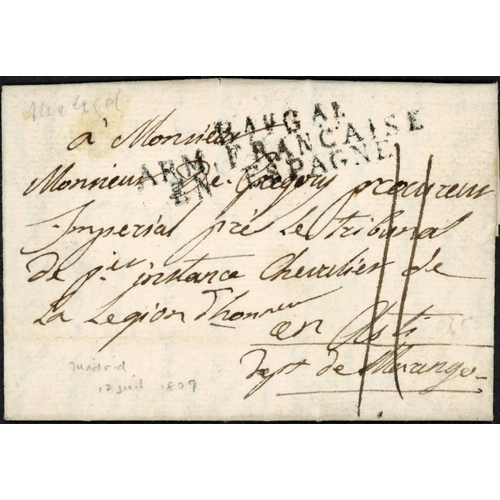 Madrid
à Monsieur
Bau Gal
ARM. FRANÇAISE
EN ESPAGNE
Monsieur De Gregory procureur
Imperial pré le tribunal
de p.ier instance Chevalier de
La Legion d'honneur
en Asti
Dept de Marengo
madrid
12 juil 1809